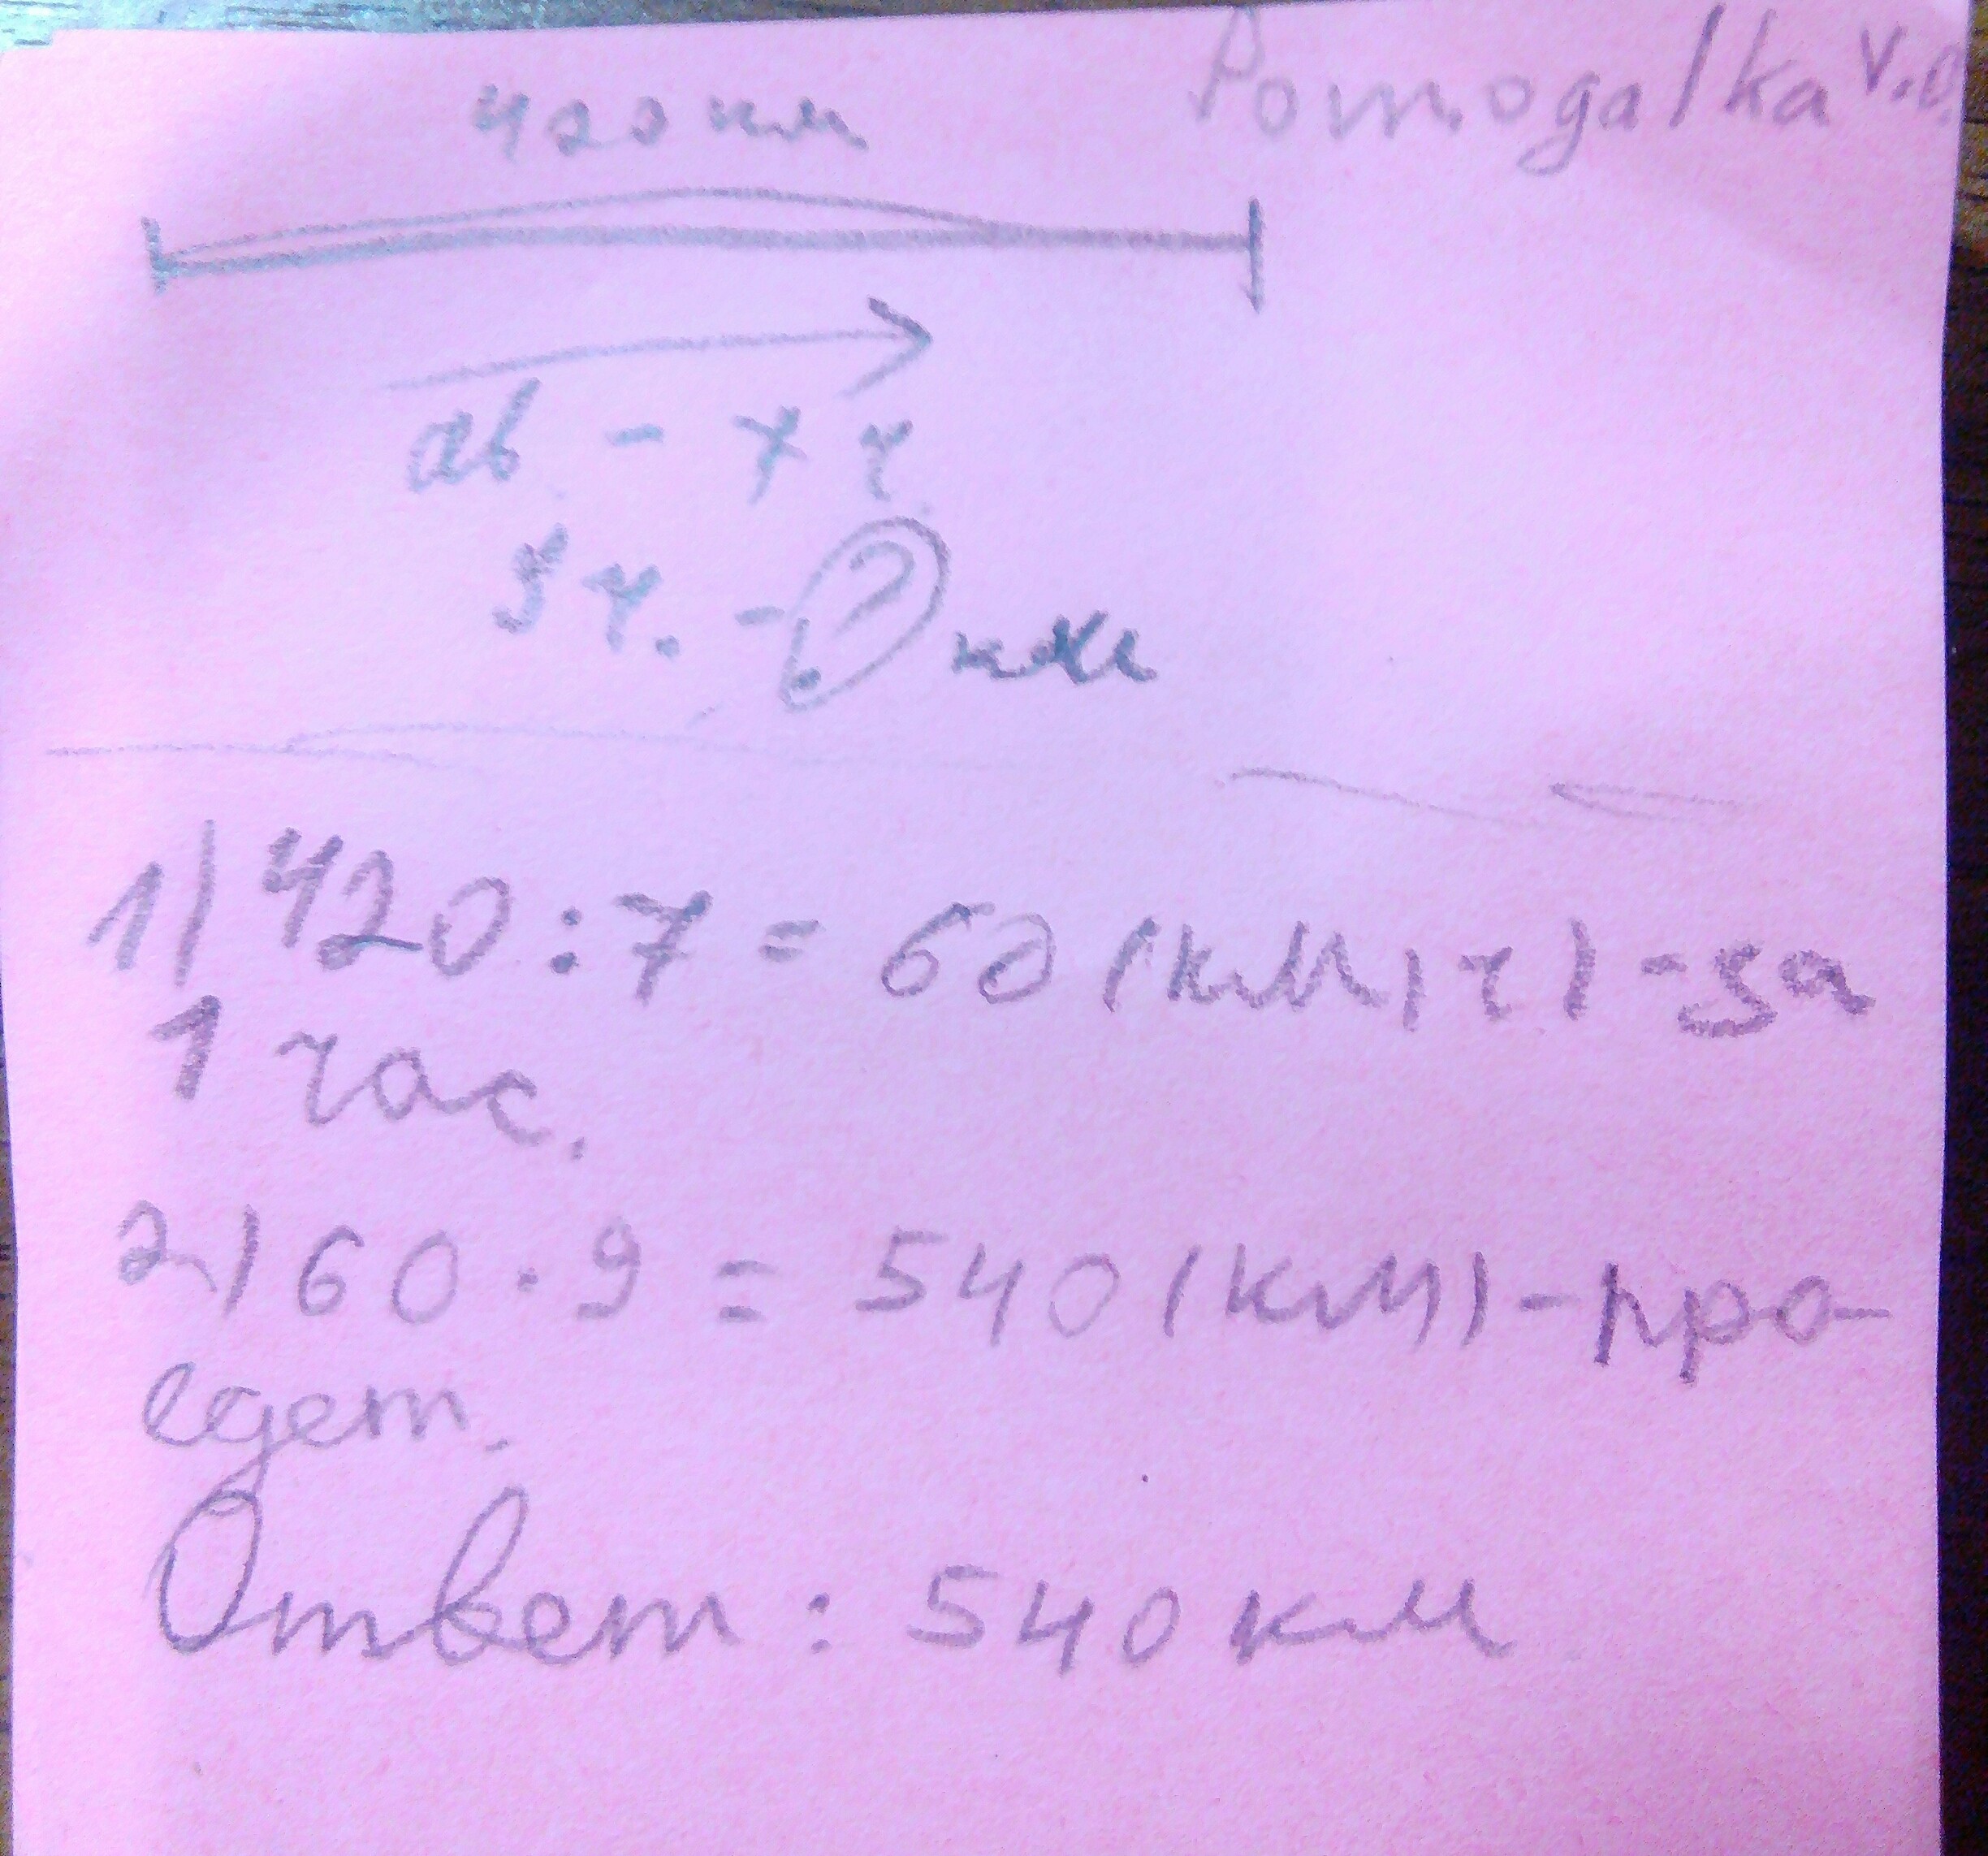 Pomogalka V.O.
420 км
ав - 7 ч
9 ч. - ? км
1) 420 : 7 = 60 (км/ч) - за
1 час.
2) 60 · 9 = 540 (км) - про-
едет.
Ответ : 540 км